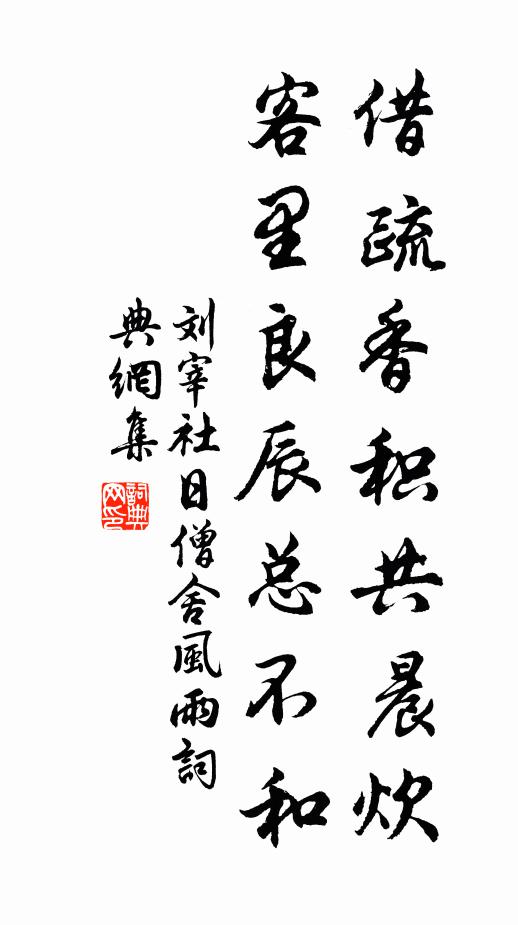 借疏香积共晨炊
客里良辰总不和
刘宰社日僧舍風雨詞
典網集
詞典网印